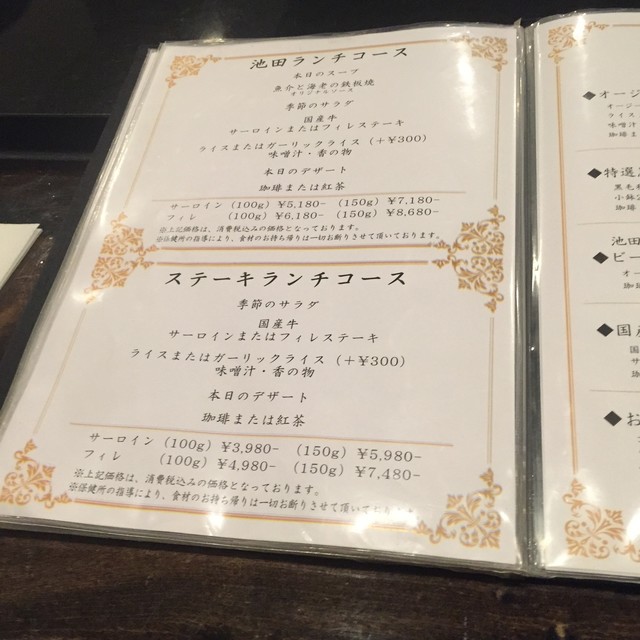 池田ランチコース
本日のスープ
魚介と海老の鉄板焼
オリジナルソース
季節のサラダ
国産牛
サーロインまたはフィレステーキ
ライスまたはガーリックライス（＋¥300）
味噌汁・香の物
本日のデザート
珈琲または紅茶
サーロイン（100g）¥5,180-　（150g）¥7,180-
フィレ　（100g）¥6,180-　（150g）¥8,680-
※上記価格は、消費税込みの価格となっております。
※保健所の指導により、食材のお持ち帰りは一切お断りさせて頂いております。
ステーキランチコース
季節のサラダ
国産牛
サーロインまたはフィレステーキ
ライスまたはガーリックライス（＋¥300）
味噌汁・香の物
本日のデザート
珈琲または紅茶
サーロイン（100g）¥3,980-　（150g）¥5,980-
フィレ　（100g）¥4,980-　（150g）¥7,480-
※上記価格は、消費税込みの価格となっております。
※保健所の指導により、食材のお持ち帰りは一切お断りさせて頂いております。
◆オージ
オージ
ライス
味噌汁
珈琲
◆特選
黒毛
小鉢
珈琲
池田
◆ビー
オー
珈琲
◆国産
国
サ
珈
◆お